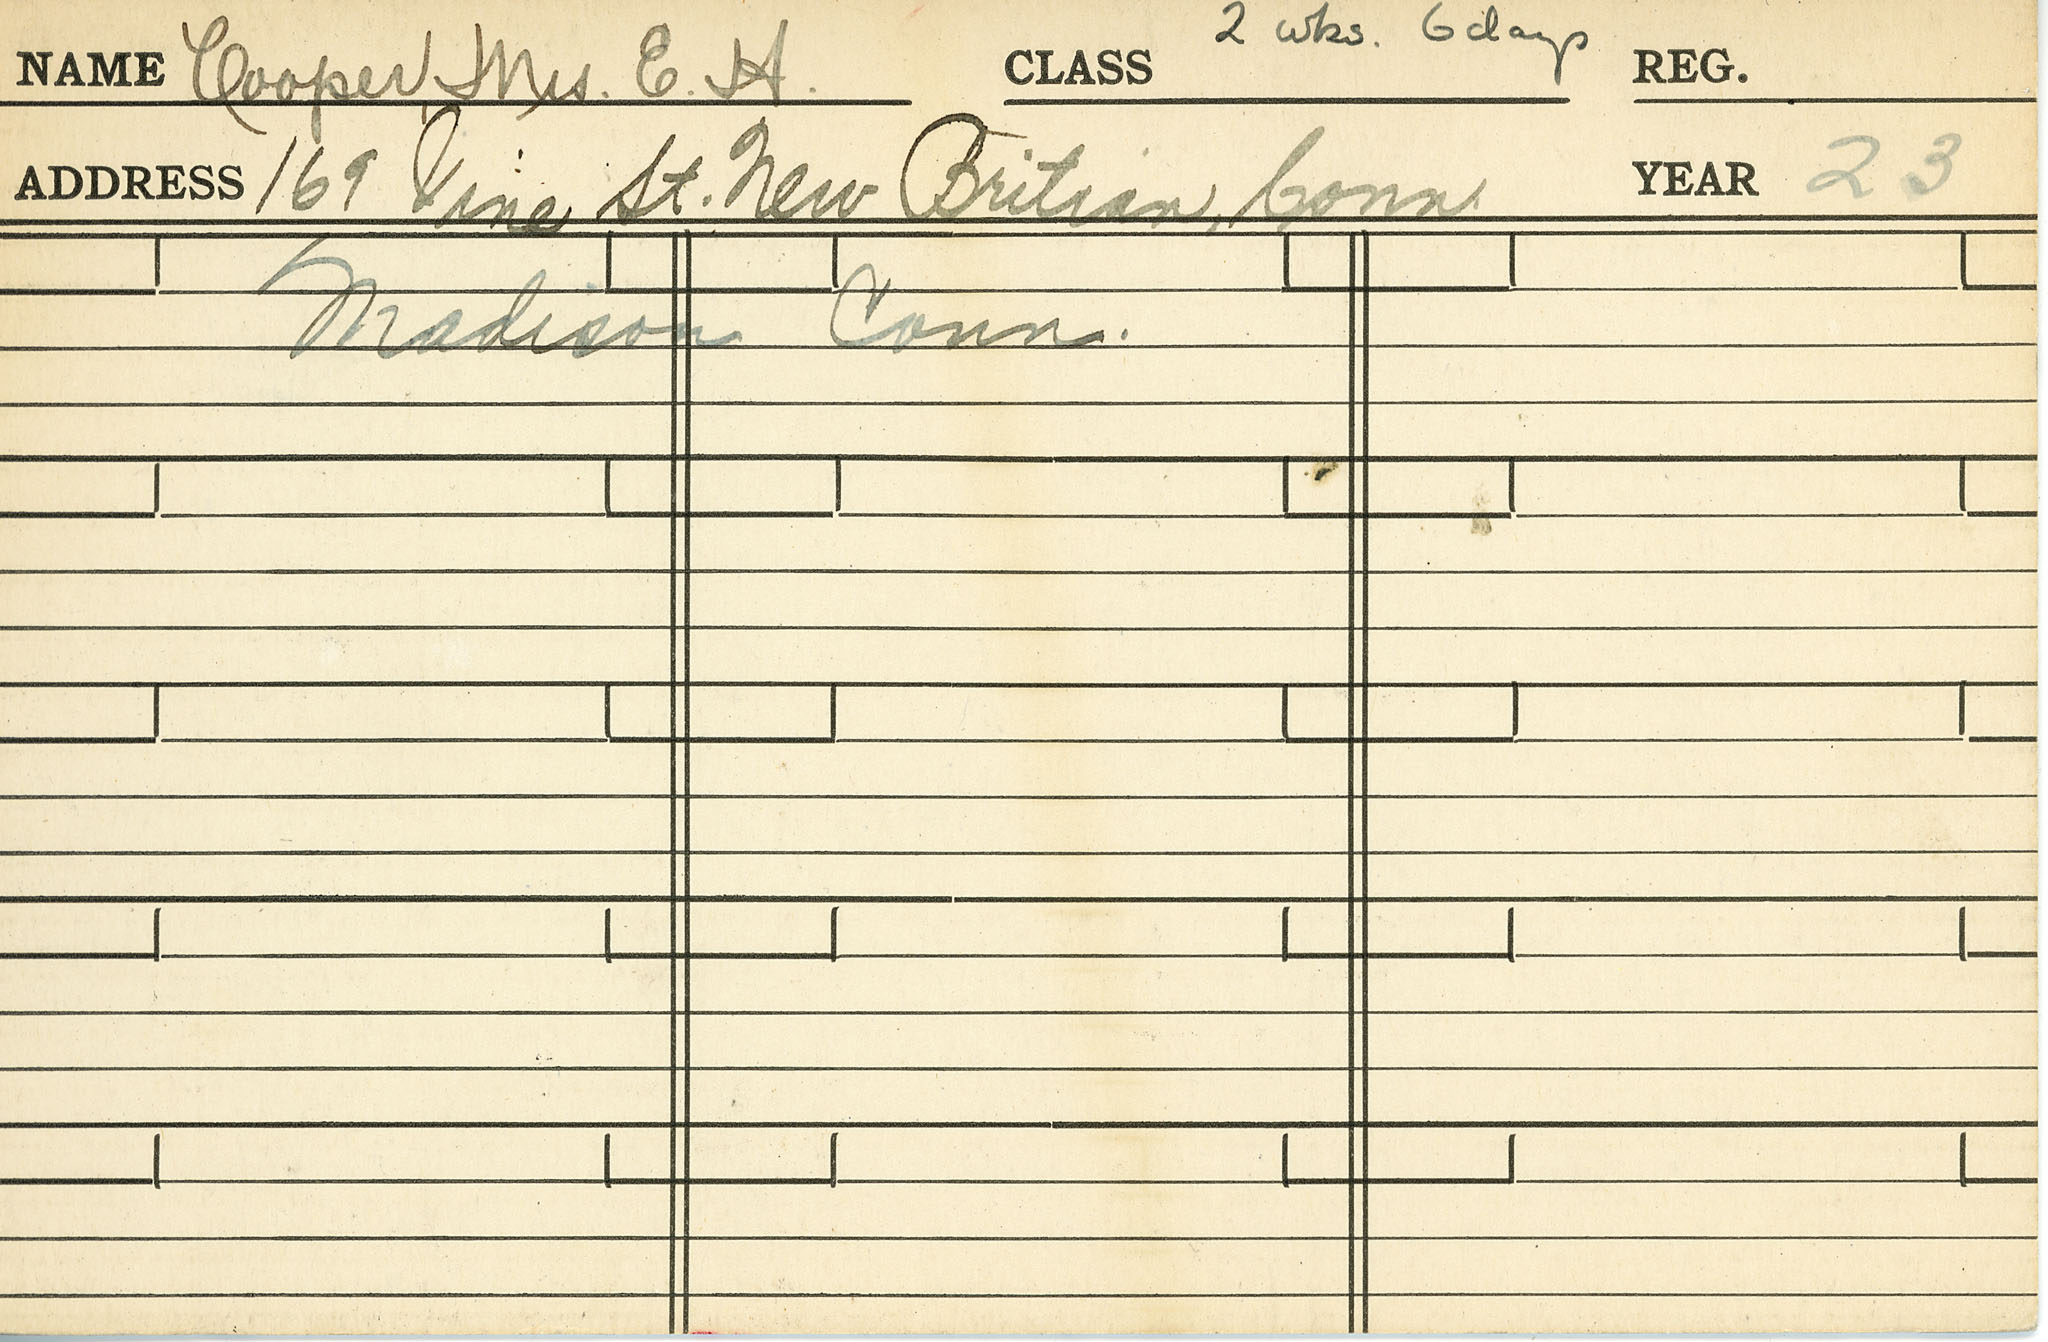 NAME Cooper, Mrs. E. H. CLASS 2 wks. 6 days REG.
ADDRESS 169 Vine St. New Britian, Conn. YEAR 23
Madison Conn.